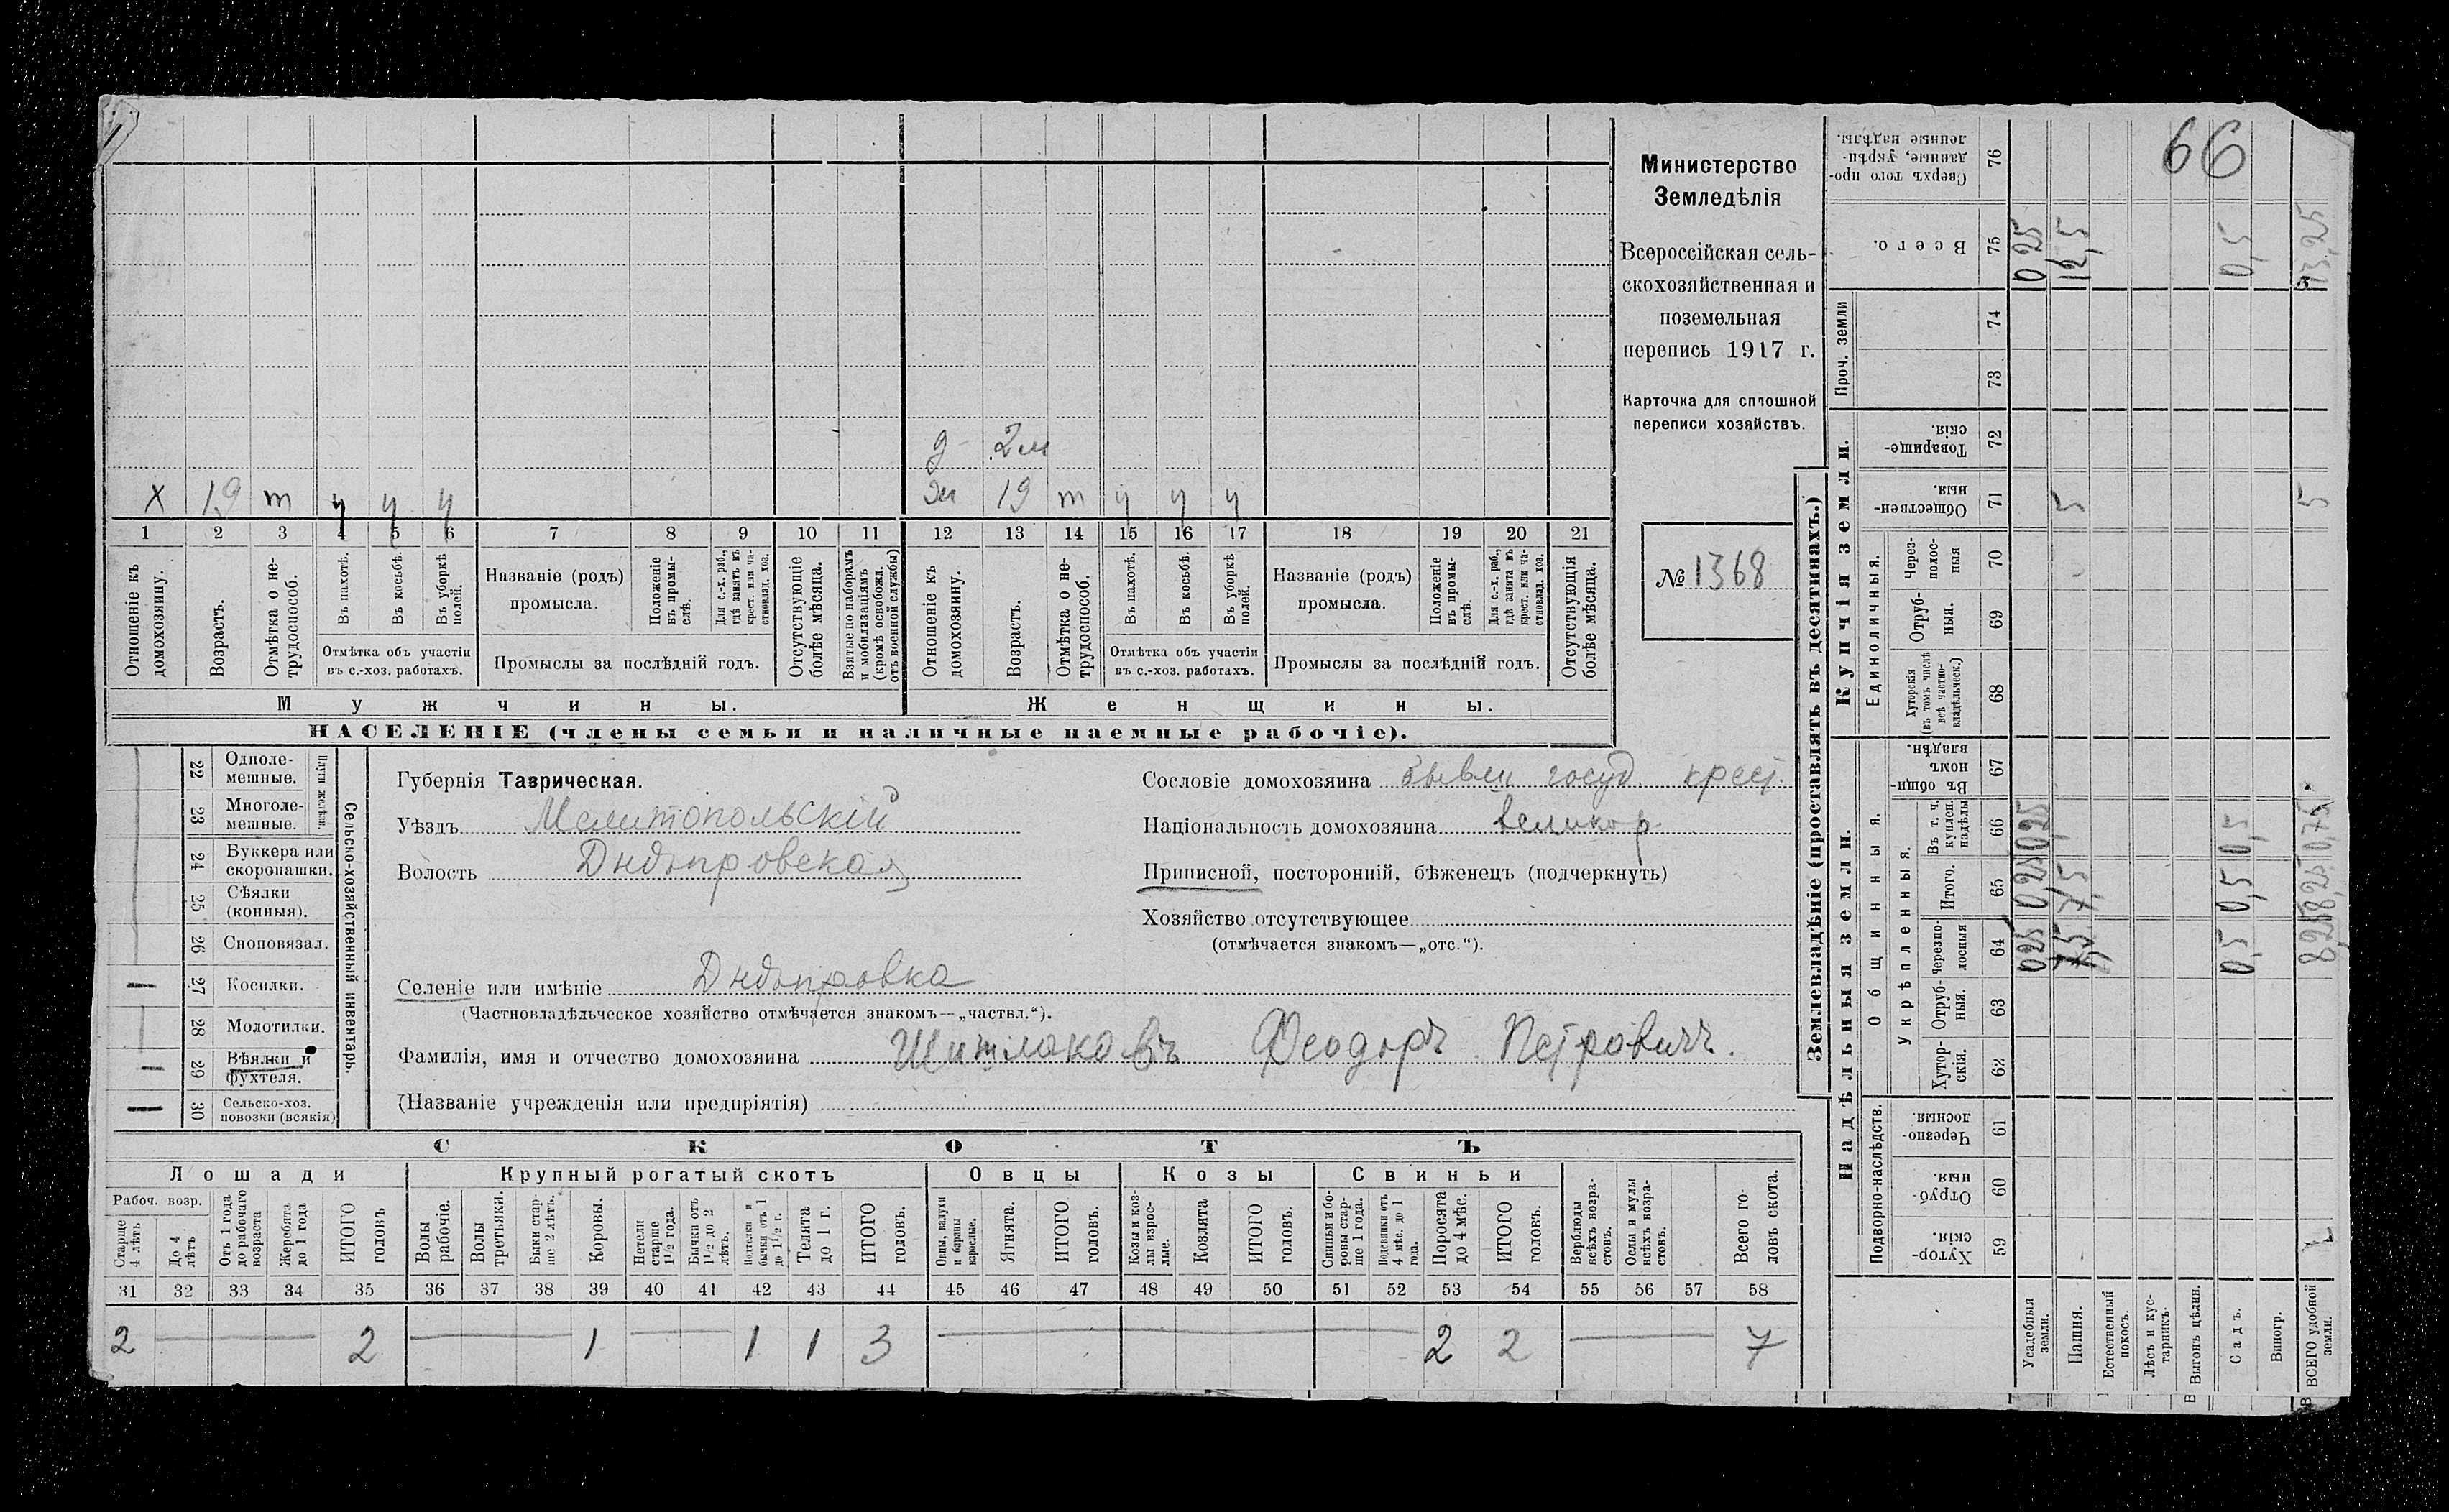 66
Министерство
Земледѣлія
Всероссійская сель-
скохозяйственная и
поземельная
перепись 1917 г.
Карточка для сплошной
переписи хозяйствъ.
№ 1368
д 2м
х 19 т ч ч ч ж 19 т ч ч ч
1 2 3 4 5 6 7 8 9 10 11 12 13 14 15 16 17 18 19 20 21
Отношеніе къ домохозяину.
Возрастъ.
Отмѣтка о не-трудоспособ.
Въ пахотѣ.
Въ косьбѣ.
Въ уборкѣ полей.
Отмѣтка объ участіи
въ с.-хоз. работахъ.
Названіе (родъ)
промысла.
Положеніе въ промы-слѣ.
Для с.-х. раб., гдѣ занятъ въ крест. или ча-стновлад. хоз.
Промыслы за послѣдній годъ.
Отсутствующіе болѣе мѣсяца.
Взятые по наборамъ и мобилизаціямъ (кромѣ освобожд. отъ военной службы)
Отношеніе къ домохозяину.
Возрастъ.
Отмѣтка о не-трудоспособ.
Въ пахотѣ.
Въ косьбѣ.
Въ уборкѣ полей.
Отмѣтка объ участіи
въ с.-хоз. работахъ.
Названіе (родъ)
промысла.
Положеніе въ промы-слѣ.
Для с.-х. раб., гдѣ занята въ крест. или ча-стновлад. хоз.
Промыслы за послѣдній годъ.
Отсутствующія болѣе мѣсяца.
Мужчины. Женщины.
НАСЕЛЕНІЕ (члены семьи и наличные наемные рабочіе).
22 Одноле-мешные.
23 Многоле-мешные.
Плуги желѣзн.
24 Буккера или скоропашки.
25 Сѣялки (конныя).
26 Сноповязал.
27 Косилки.
28 Молотилки.
29 Вѣялки и фухтеля.
30 Сельско-хоз. повозки (всякія)
Сельско-хозяйственный инвентарь.
Губернія Таврическая.
Уѣздъ Мелитопольскій
Волость Днѣпровская
Селеніе или имѣніе Днѣпровка
(Частновладѣльческое хозяйство отмѣчается знакомъ—„частвл.“).
Фамилія, имя и отчество домохозяина Шишлаковъ Феодоръ Петровичъ.
(Названіе учрежденія или предпріятія)
Сословіе домохозяина бывш госуд. крест.
Національность домохозяина великор.
Приписной, посторонній, бѣженецъ (подчеркнуть)
Хозяйство отсутствующее
(отмѣчается знакомъ—„отс.“).
СКОТЪ
Лошади Крупный рогатый скотъ Овцы Козы Свиньи
Рабоч. возр.
Старше 4 лѣтъ
До 4 лѣтъ
Отъ 1 года до рабочаго возраста
Жеребята до 1 года
ИТОГО головъ
Волы рабочіе.
Волы третьяки.
Быки стар-ше 2 лѣтъ.
Коровы.
Нетели старше 1½ года.
Бычки отъ 1½ до 2 лѣтъ.
Подтелки и бычки отъ 1 до 1½ г.
Телята до 1 г.
ИТОГО головъ.
Овцы, валухи и бараны взрослые.
Ягнята.
ИТОГО головъ.
Козы и коз-лы взрос-лые.
Козлята
ИТОГО головъ.
Свиньи и бо-ровы стар-ше 1 года.
Подсвинки отъ 4 мѣс. до 1 года.
Поросята до 4 мѣс.
ИТОГО головъ.
Верблюды всѣхъ возра-стовъ.
Ослы и мулы всѣхъ возра-стовъ.
Всего го-ловъ скота.
31 32 33 34 35 36 37 38 39 40 41 42 43 44 45 46 47 48 49 50 51 52 53 54 55 56 57 58
2 2 1 1 1 3 2 2 7
Землевладѣніе (проставлять въ десятинахъ.)
Надѣльныя земли. Купчія земли. Проч. земли
Подворно-наслѣдств.
Общинныя.
Укрѣпленныя.
Единоличныя.
Хутор-скія. 59
Отруб-ныя. 60
Черезпо-лосныя. 61
Хутор-скія. 62
Отруб-ныя. 63
Черезпо-лосныя 64
Итого. 65
Въ т. ч. куплен. надѣлы 66
Въ общин-номъ владѣн. 67
Хуторскія (въ томъ числѣ всѣ частно-владѣльческ.) 68
Отруб-ныя. 69
Через-полос-ныя 70
Обществен-ныя. 71
Товарище-скія. 72
73
74
Всего. 75
Сверхъ того про-данные, укрѣп-ленные надѣлы. 76
Усадебныя земли. 0,25 0,25 0,25 0,25
Пашня. 7,5 7,5 5 12,5
Естественный покосъ.
Лѣсъ и кус-тарникъ.
Выгонъ цѣлин.
Садъ. 0,5 0,5 0,5 0,5
Виногр.
ВСЕГО удобной земли. 8,25 8,25 0,75 5 13,25